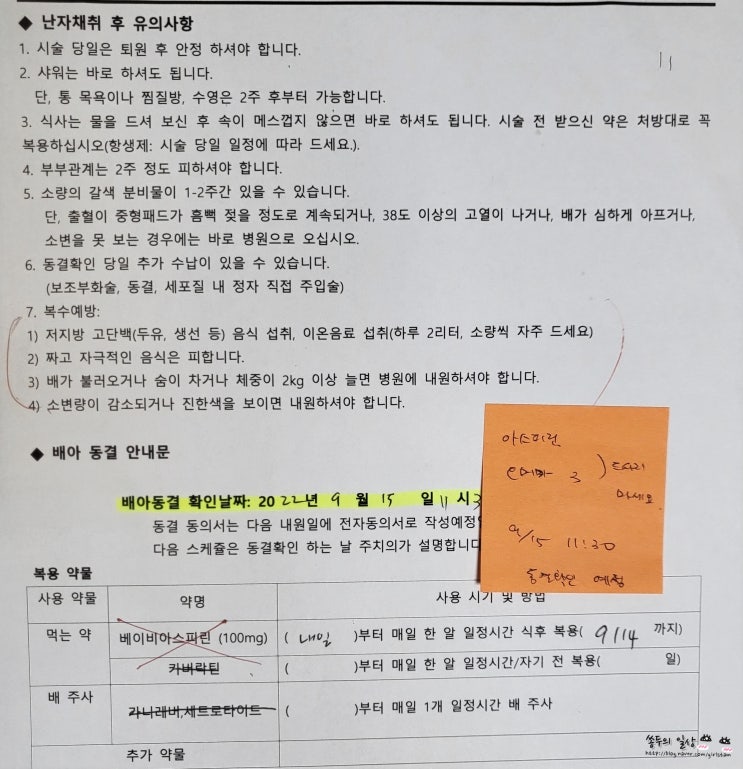 ◆ 난자채취 후 유의사항
1. 시술 당일은 퇴원 후 안정 하셔야 합니다.
2. 샤워는 바로 하셔도 됩니다.
단, 통 목욕이나 찜질방, 수영은 2주 후부터 가능합니다.
3. 식사는 물을 드셔 보신 후 속이 메스껍지 않으면 바로 하셔도 됩니다. 시술 전 받으신 약은 처방대로 꼭
복용하십시오(항생제: 시술 당일 일정에 따라 드세요.).
4. 부부관계는 2주 정도 피하셔야 합니다.
5. 소량의 갈색 분비물이 1-2주간 있을 수 있습니다.
단, 출혈이 중형패드가 흠뻑 젖을 정도로 계속되거나, 38도 이상의 고열이 나거나, 배가 심하게 아프거나,
소변을 못 보는 경우에는 바로 병원으로 오십시오.
6. 동결확인 당일 추가 수납이 있을 수 있습니다.
(보조부화술, 동결, 세포질 내 정자 직접 주입술)
7. 복수예방:
1) 저지방 고단백(두유, 생선 등) 음식 섭취, 이온음료 섭취(하루 2리터, 소량씩 자주 드세요)
2) 짜고 자극적인 음식은 피합니다.
3) 배가 불러오거나 숨이 차거나 체중이 2kg 이상 늘면 병원에 내원하셔야 합니다.
4) 소변량이 감소되거나 진한색을 보이면 내원하셔야 합니다.
◆ 배아 동결 안내문
배아동결 확인날짜: 2022년 9월 15일 11시 3
동결 동의서는 다음 내원일에 전자동의서로 작성예정
다음 스케쥴은 동결확인 하는 날 주치의가 설명합니다
아스피린
3 ) 드시지
마세요.
9/15 11:30
동결확인 예정
복용 약물
사용 약물 약명 사용 시기 및 방법
먹는 약 베이비아스피린 (100mg) ( 내일 )부터 매일 한 알 일정시간 식후 복용( 9/14 까지)
카버락틴 ( )부터 매일 한 알 일정시간/자기 전 복용( 일)
배 주사 가니레버,세트로타이드 ( )부터 매일 1개 일정시간 배 주사
추가 약물
쏭두의 일상
http://blog.naver.com/girlsdam